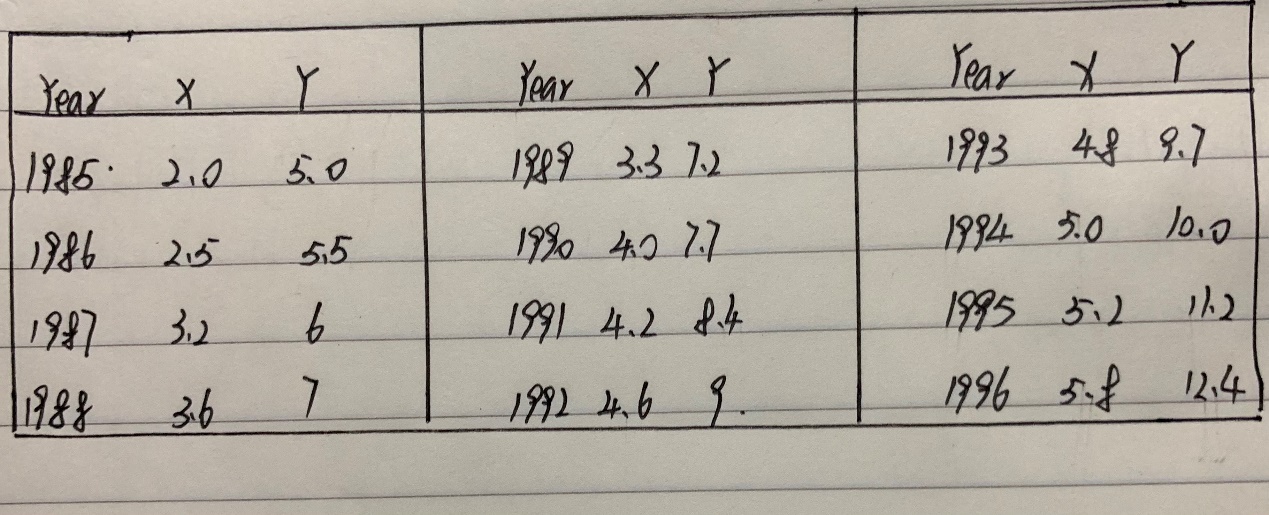 Year X Y Year X Y Year X Y
1985 2.0 5.0 1989 3.3 7.2 1993 4.8 9.7
1986 2.5 5.5 1990 4.0 7.7 1994 5.0 10.0
1987 3.2 6 1991 4.2 8.4 1995 5.2 11.2
1988 3.6 7 1992 4.6 9. 1996 5.8 12.4